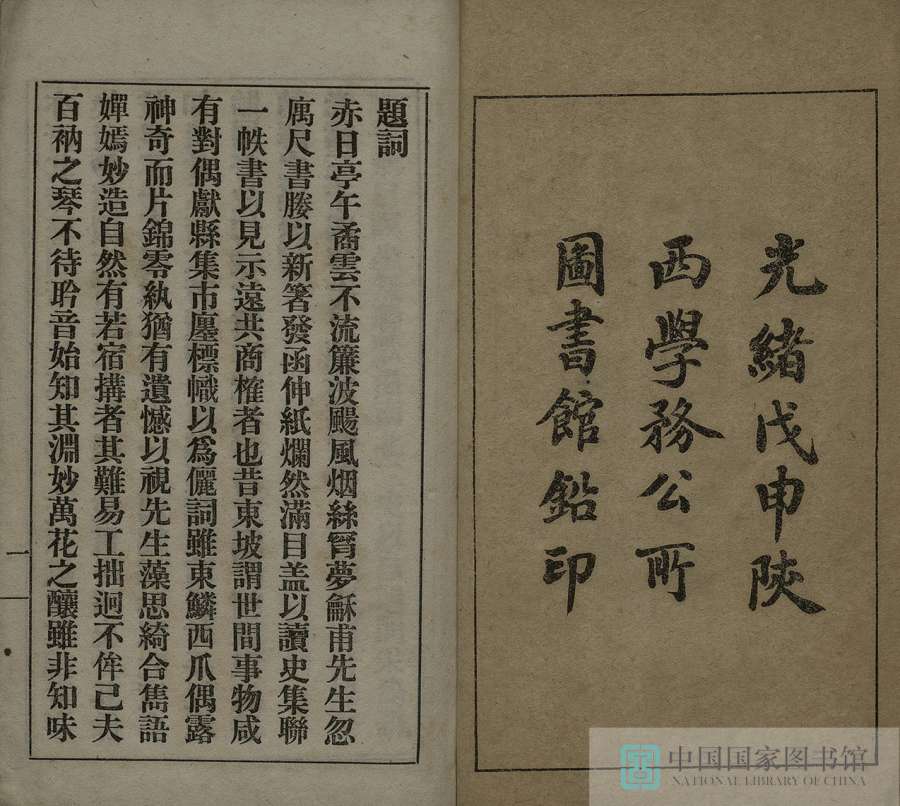 光緒戊申陝
西學務公所
圖書館鉛印
題詞
赤日亭午矞雲不流簾波颺風烟絲胃夢龢甫先生忽
寓尺書賸以新箸發函伸紙爛然滿目盖以讀史集聯
一帙書以見示遠共商榷者也昔東坡謂世間事物咸
有對偶獻縣集市廛標幟以爲儷詞雖東鱗西爪偶露
神奇而片錦零紈猶有遺憾以視先生藻思綺合雋語
嬋嫣妙造自然有若宿搆者其難易工拙迥不侔已夫
百衲之琴不待聆音始知其淵妙萬花之釀雖非知味
一
中国国家图书馆
NATIONAL LIBRARY OF CHINA